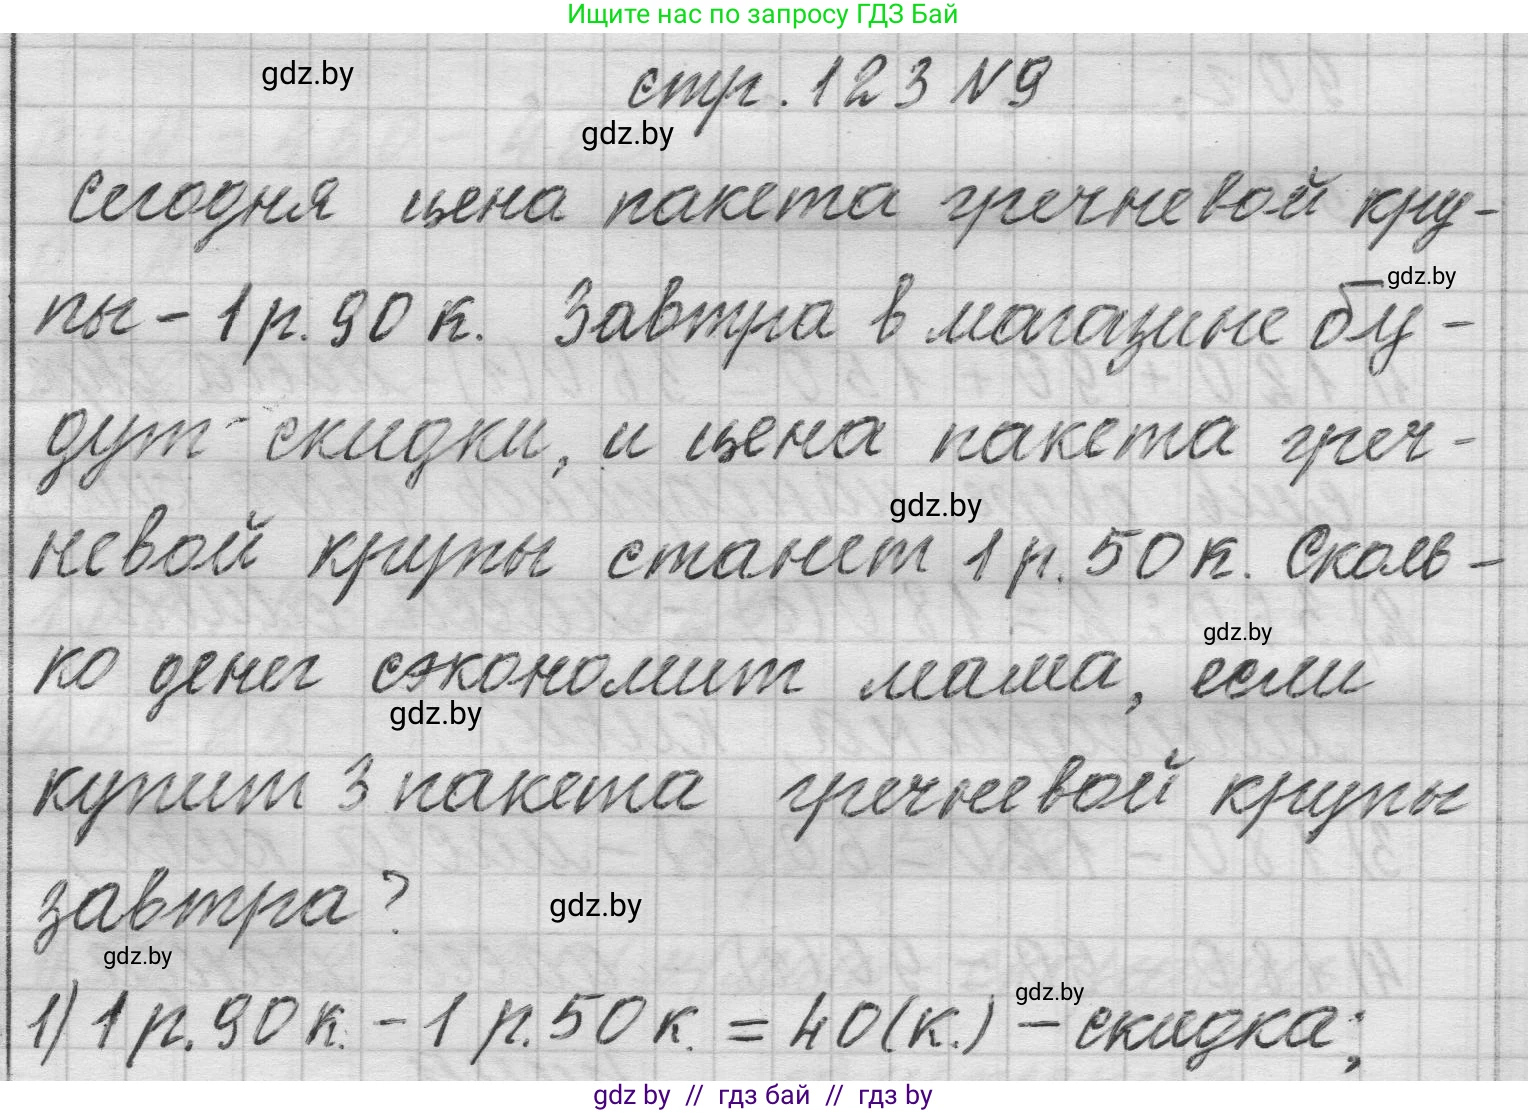 Ищите нас по запросу ГДЗ Бай
gdz.by
стр. 123 №9
gdz.by
Сегодня цена пакета гречневой кру-
пы - 1 р. 90 к. Завтра в магазине бу-
gdz.by
дут скидки, и цена пакета греч-
gdz.by
невой крупы станет 1 р. 50 к. Сколь-
gdz.by
ко денег сэкономит мама, если
gdz.by
купит 3 пакета гречневой крупы
завтра?
gdz.by
gdz.by
gdz.by
1) 1 р. 90 к. - 1 р. 50 к. = 40 (к.) - скидка;
gdz by // гдз бай // гдз by